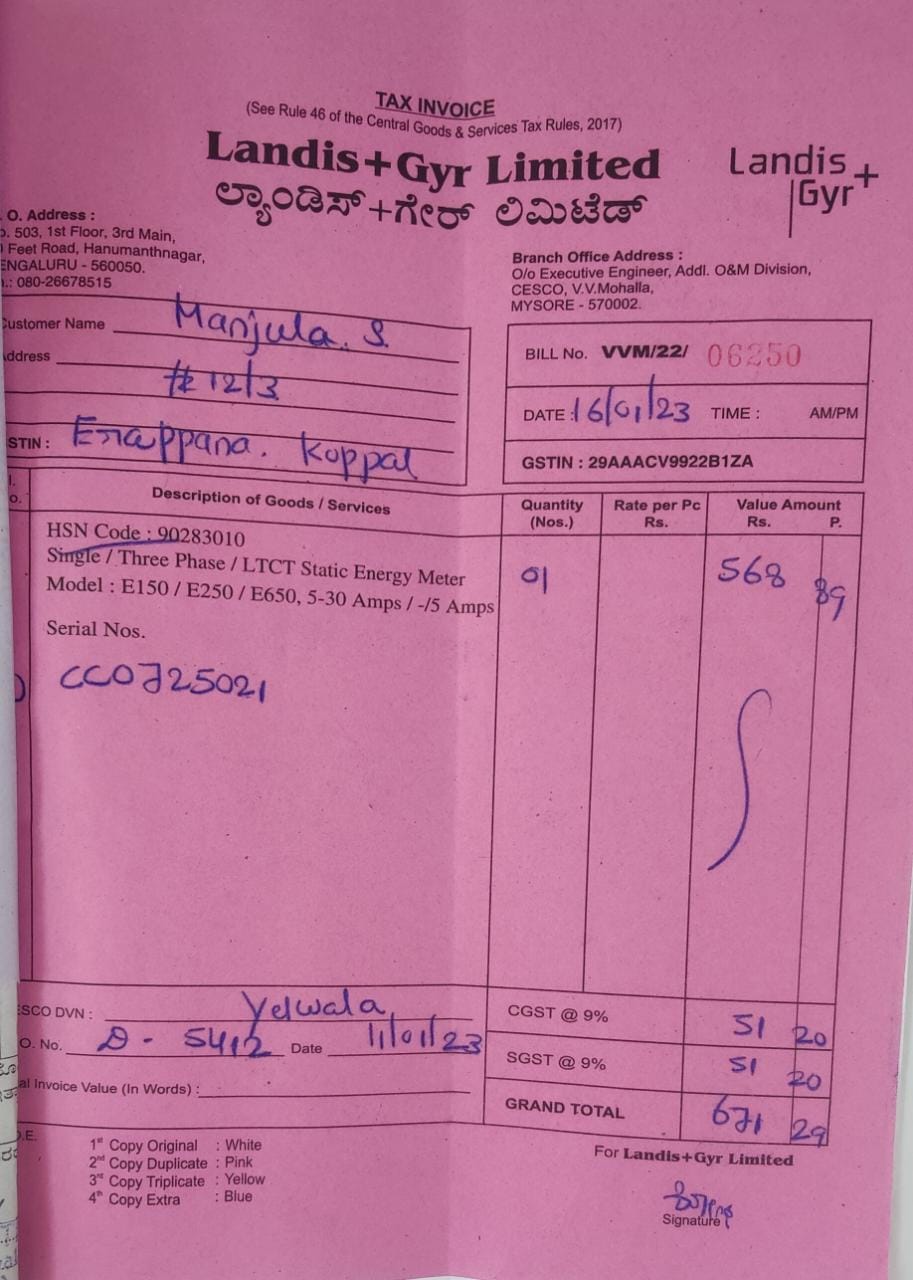 TAX INVOICE
(See Rule 46 of the Central Goods & Services Tax Rules, 2017)
Landis+Gyr Limited
ಲ್ಯಾಂಡಿಸ್+ಗೇರ್ ಲಿಮಿಟೆಡ್
Landis+
Gyr
. O. Address :
. 503, 1st Floor, 3rd Main,
Feet Road, Hanumanthnagar,
ENGALURU - 560050.
.: 080-26678515
Branch Office Address :
O/o Executive Engineer, Addl. O&M Division,
CESCO, V.V.Mohalla,
MYSORE - 570002.
Customer Name Manjula. S.
Address
# 12/3
STIN : Erappana. Koppal
BILL No. VVM/22/ 06250
DATE : 16/01/23 TIME : AM/PM
GSTIN : 29AAACV9922B1ZA
Description of Goods / Services Quantity (Nos.) Rate per Pc Rs. Value Amount Rs. P.
HSN Code : 90283010
Single / Three Phase / LTCT Static Energy Meter 01 568 89
Model : E150 / E250 / E650, 5-30 Amps / -/5 Amps
Serial Nos.
CCOJ25021
ESCO DVN : Yelwala
O. No. D - 5412 Date 11/01/23
al Invoice Value (In Words) :
CGST @ 9% 51 20
SGST @ 9% 51 20
GRAND TOTAL 671 29
.E.
1st Copy Original : White
2nd Copy Duplicate : Pink
3rd Copy Triplicate : Yellow
4th Copy Extra : Blue
For Landis+Gyr Limited
Signature